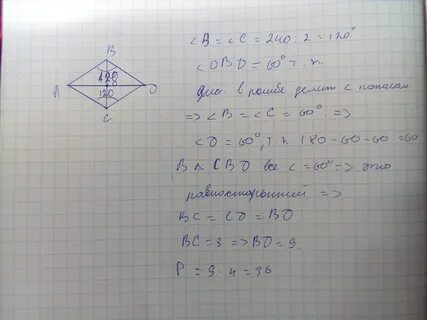 B
120
28
A
O
120
C
∠B = ∠C = 240 : 2 = 120°
∠OBD = 60° т.к
диаг. в ромбе делит ∠ попалам
=> ∠B = ∠C = 60° =>
∠O = 60°, т.к 180 - 60 - 60 = 60
В △ CBO все ∠ = 60° => это
равносторонний =>
BC = CO = BO
BC = 9 => BO = 9.
P = 9 · 4 = 36